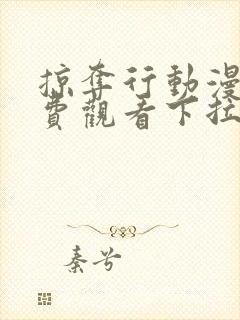 掠奪行動漫
費觀看下拉
秦兮